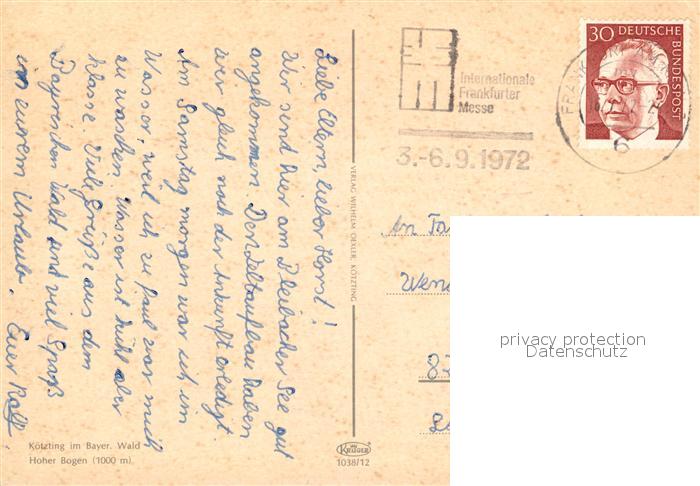 Liebe Eltern, lieber Horst!
Wir sind hier am Bleibacher See gut
angekommen. Den Zeltaufbau haben
wir gleich nach der Ankunft erledigt.
Am Samstag morgen war ich im
Wasser, weil ich zu faul war mich
zu waschen. Wasser ist kühl aber
Klasse. Viele Grüße aus dem
Bayrischen Wald und viel Spaß
in eurem Urlaub. Euer Ralf.
Kötzting im Bayer. Wald
Hoher Bogen (1000 m)
VERLAG WILHELM OEXLER, KÖTZTING
KRÜGER
1038/12
Internationale
Frankfurter
Messe
3.-6.9.1972
30 DEUTSCHE
BUNDESPOST
FRANK
6
An
privacy protection
Datenschutz